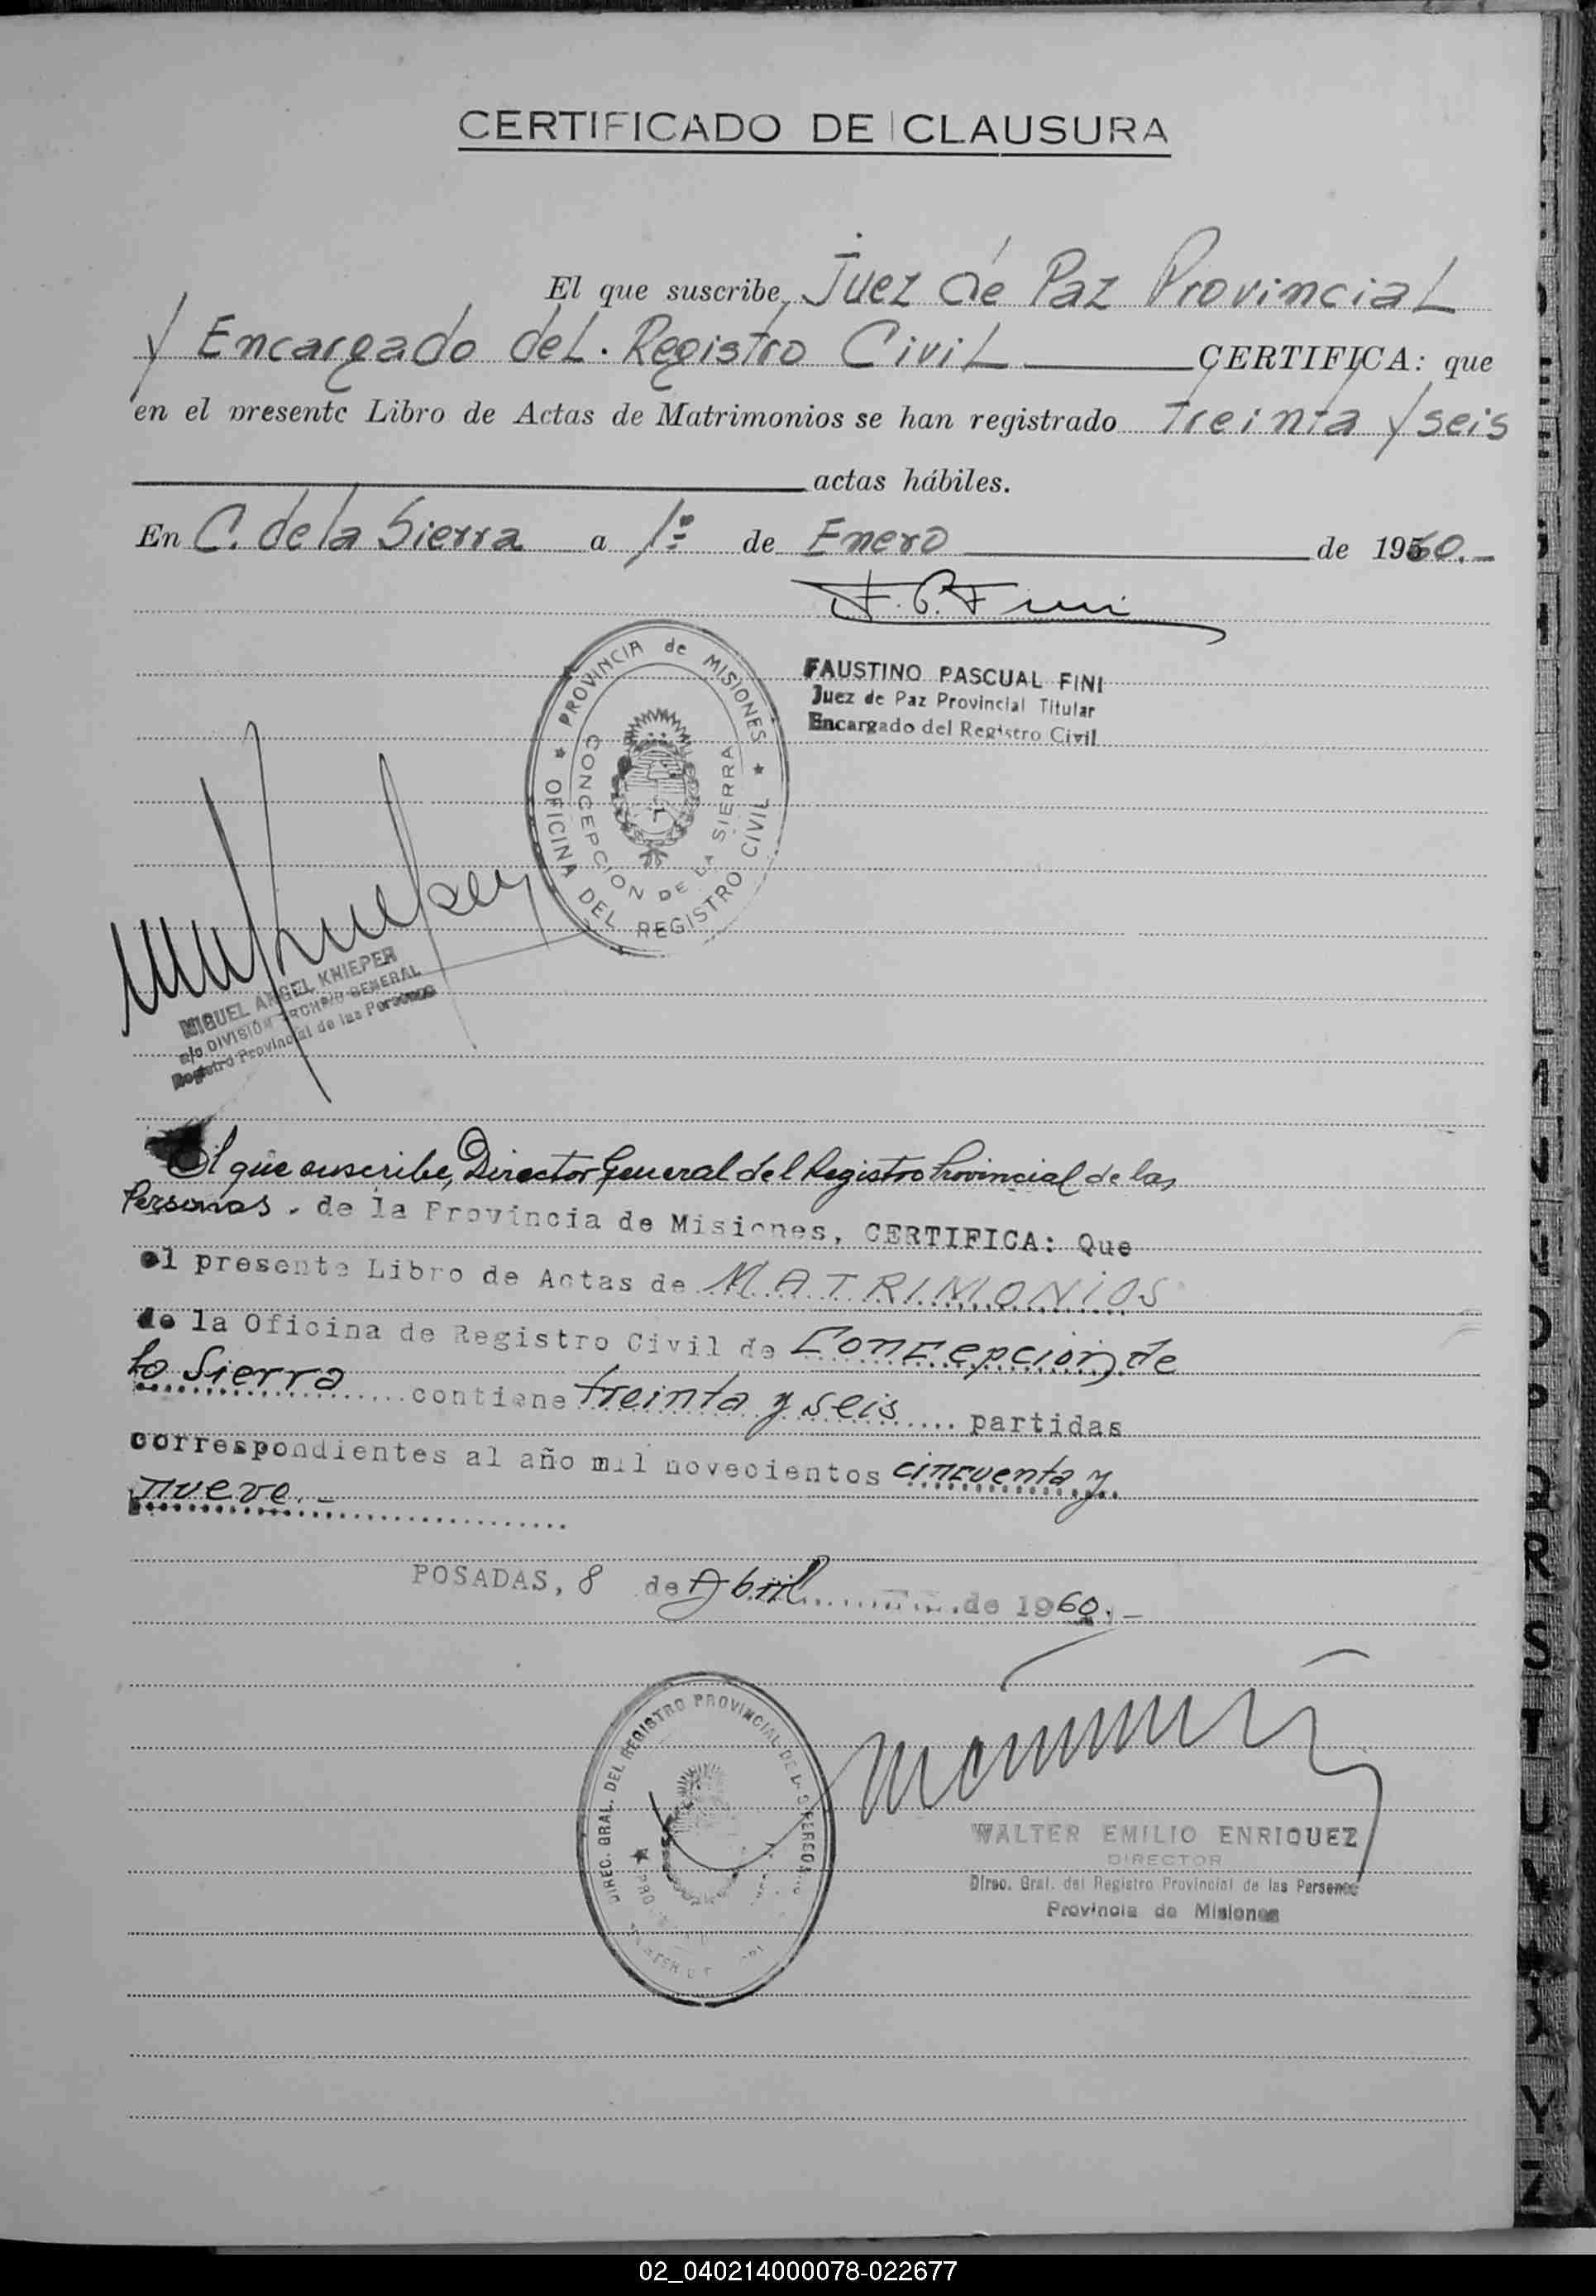 CERTIFICADO DE CLAUSURA
El que suscribe, Juez de Paz Provincial
y Encargado del Registro Civil CERTIFICA: que
en el presente Libro de Actas de Matrimonios se han registrado treinta y seis
actas hábiles.
En C. de la Sierra a 1º de Enero de 1960.-
F. P. Fini
FAUSTINO PASCUAL FINI
Juez de Paz Provincial Titular
Encargado del Registro Civil
PROVINCIA de MISIONES
OFICINA DEL REGISTRO CIVIL
CONCEPCION DE LA SIERRA
MIGUEL ANGEL KNIEPER
a/c DIVISIÓN ARCHIVO GENERAL
Registro Provincial de las Personas
El que suscribe, Director General del Registro Provincial de las
Personas, de la Provincia de Misiones, CERTIFICA: Que
el presente Libro de Actas de MATRIMONIOS
de la Oficina de Registro Civil de Concepción de
la Sierra contiene treinta y seis partidas
correspondientes al año mil novecientos cincuenta y
nueve.-
POSADAS, 8 de Abril de 1960.-
DIREC. GRAL. DEL REGISTRO PROVINCIAL DE LAS PERSONAS
WALTER EMILIO ENRIQUEZ
DIRECTOR
Direc. Gral. del Registro Provincial de las Personas
Provincia de Misiones
P
Q
R
S
T
U
V
X
Y
Z
02_040214000078-022677